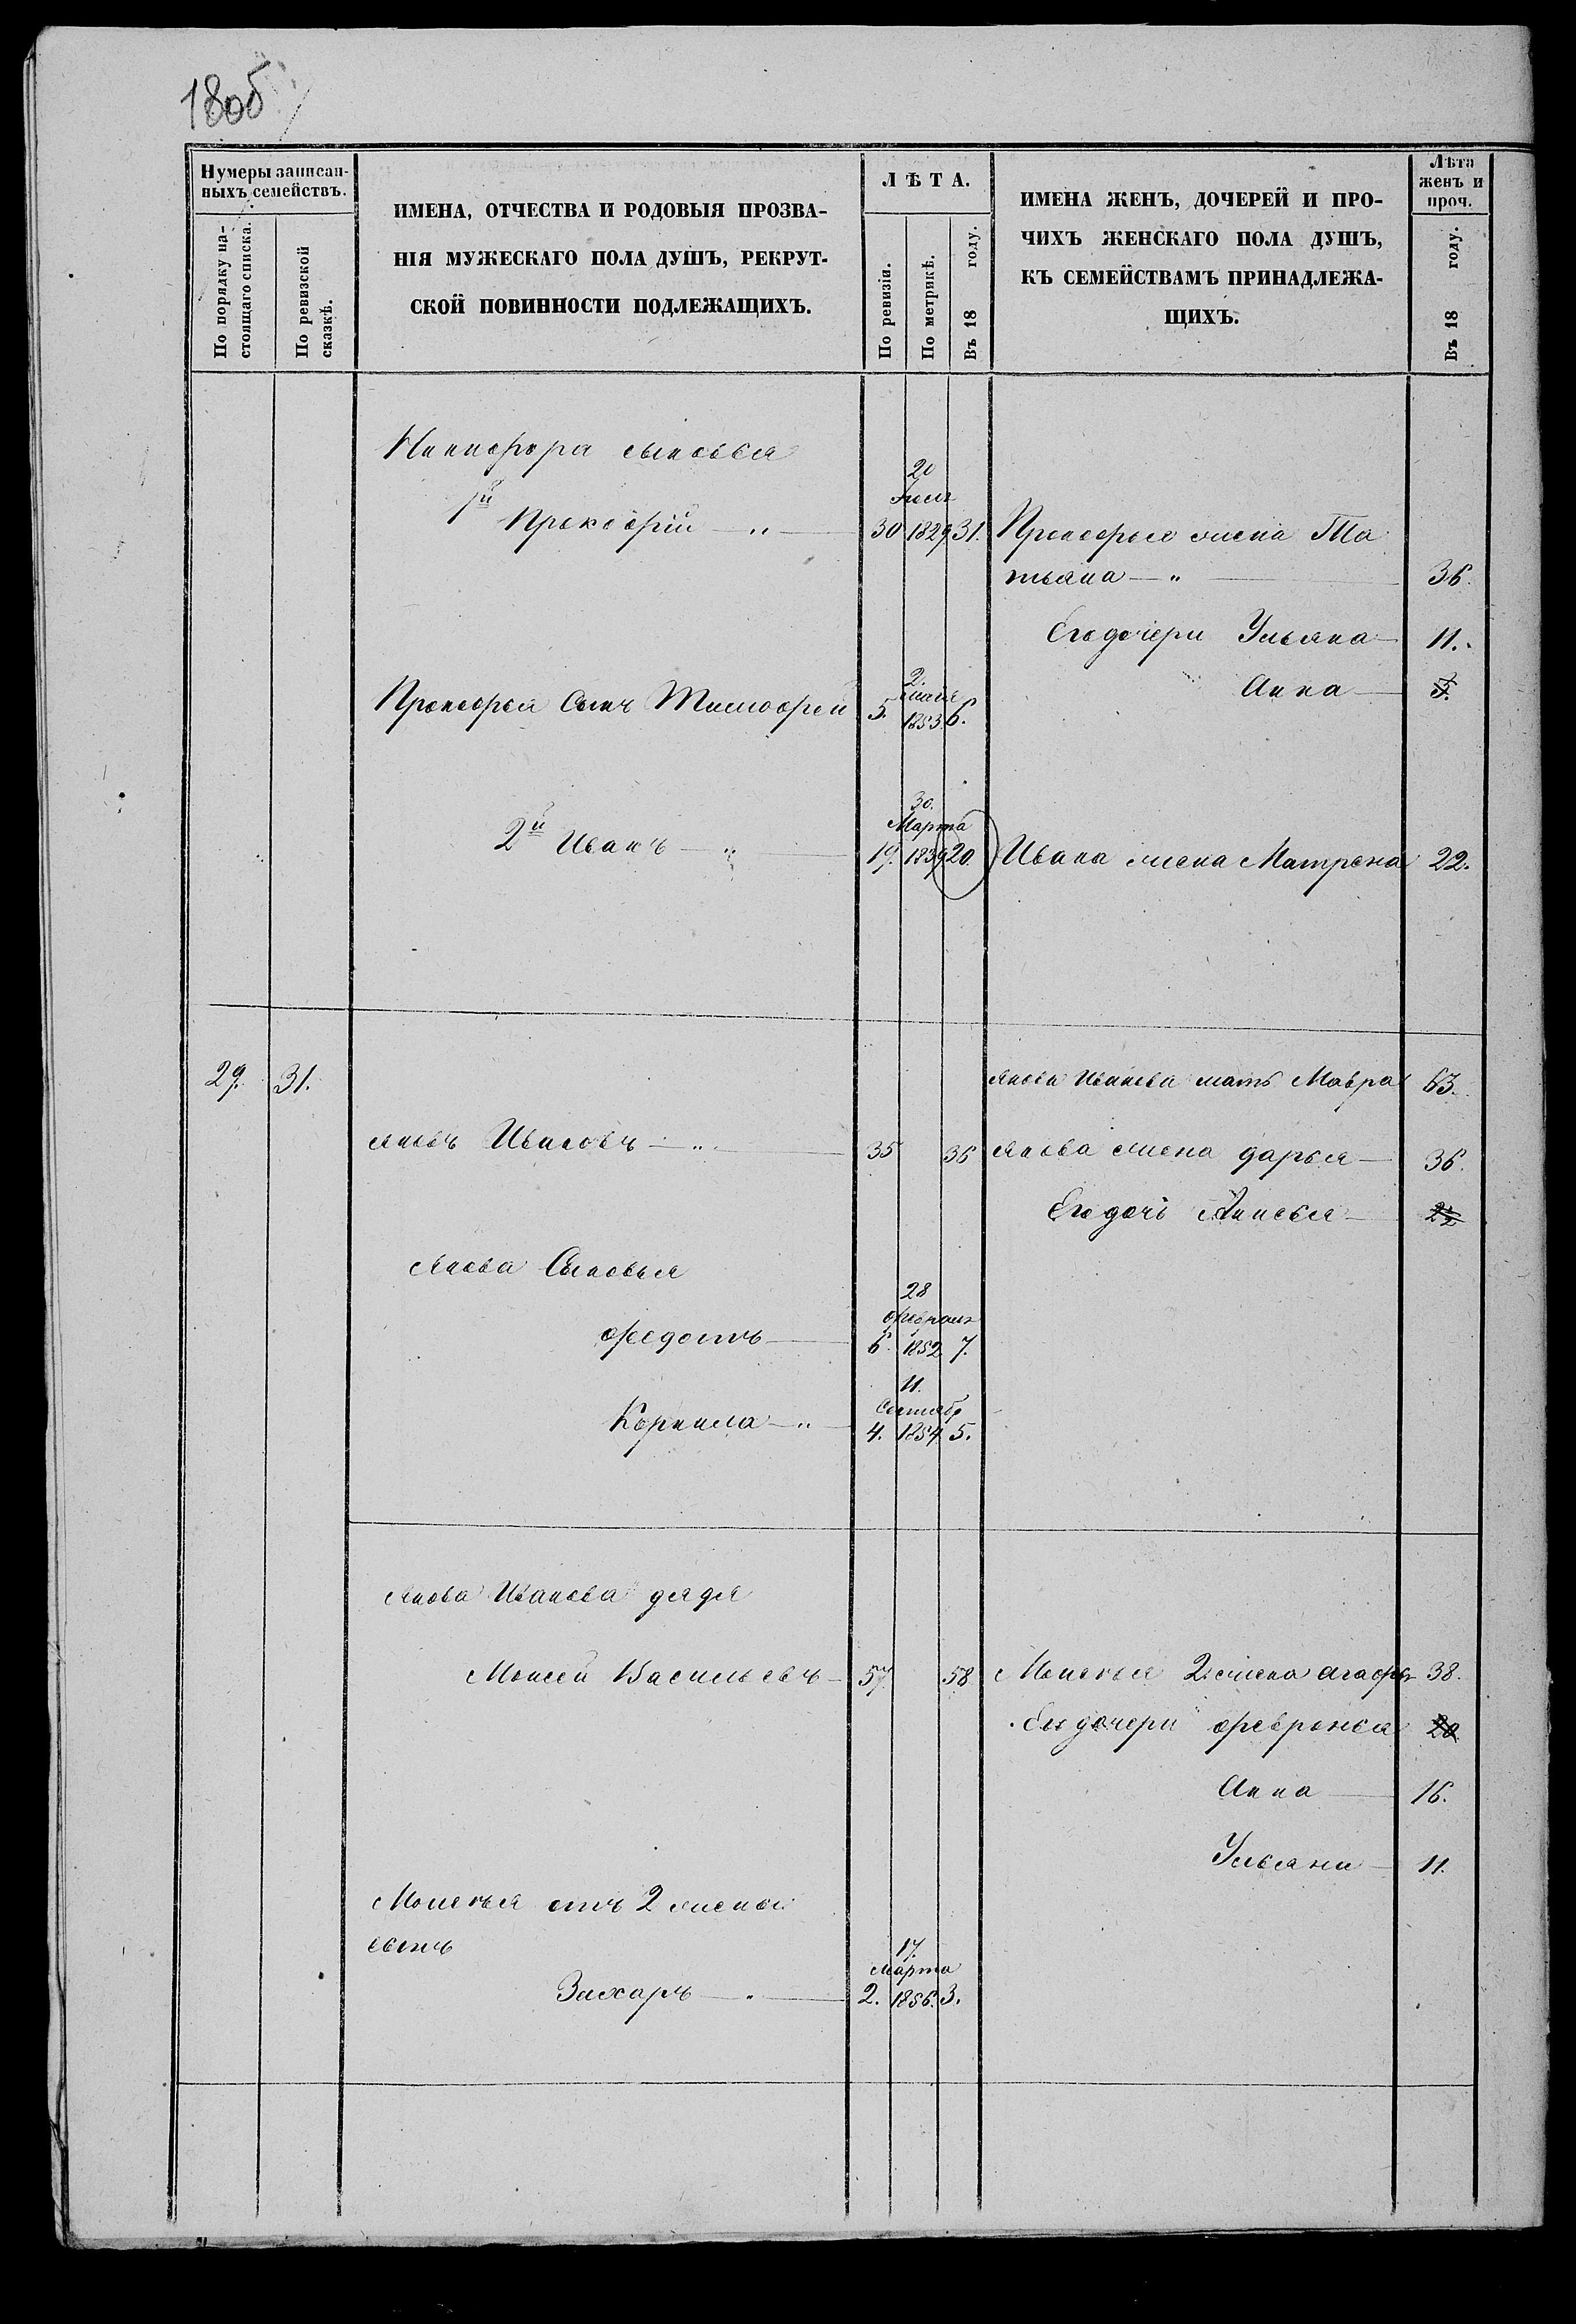 180б
Нумеры записан-
ныхъ семействъ.
По порядку на-
стоящаго списка.
По ревизской
сказкѣ.
ИМЕНА, ОТЧЕСТВА И РОДОВЫЯ ПРОЗВА-
НІЯ МУЖЕСКАГО ПОЛА ДУШЪ, РЕКРУТ-
СКОЙ ПОВИННОСТИ ПОДЛЕЖАЩИХЪ.
ЛѢТА.
По ревизіи.
По метрикѣ.
Въ 18 году.
ИМЕНА ЖЕНЪ, ДОЧЕРЕЙ И ПРО-
ЧИХЪ ЖЕНСКАГО ПОЛА ДУШЪ,
КЪ СЕМЕЙСТВАМЪ ПРИНАДЛЕЖА-
ЩИХЪ.
Лѣта
женъ и
проч.
Въ 18 году.
Никифора сыновья
20
Июля
1й Прокофій — " — 30 1829 31. Прокофья жена Та
тьяна — " — 36.
Его дочери Ульяна — 11.
Анна — 5.
2.
мая
Прокофья Сынъ Тимофей 5. 1853. 6.
30.
Марта
2й Иванъ — " — 19. 1839 20. Ивана жена Матрена 22.
29. 31. Якова Иванова мать Мавра 63.
Яковъ Ивановъ — " — 35 36 Якова жена дарья — 36.
Его дочь Анисья —
Якова Сыновья
28
февраля
федотъ — 6. 1852. 7.
11.
Сентябр
Корнила — " — 4. 1854 5.
Якова Иванова дядя
Моисей Васильевъ — 57. 58 Моисея 2 жена агафья 38.
Его дочери февронья 20
Анна — 16.
Ульяна — 11.
Моисея отъ 2 жены
сынъ
17.
марта
Захаръ — " — 2. 1856. 3.